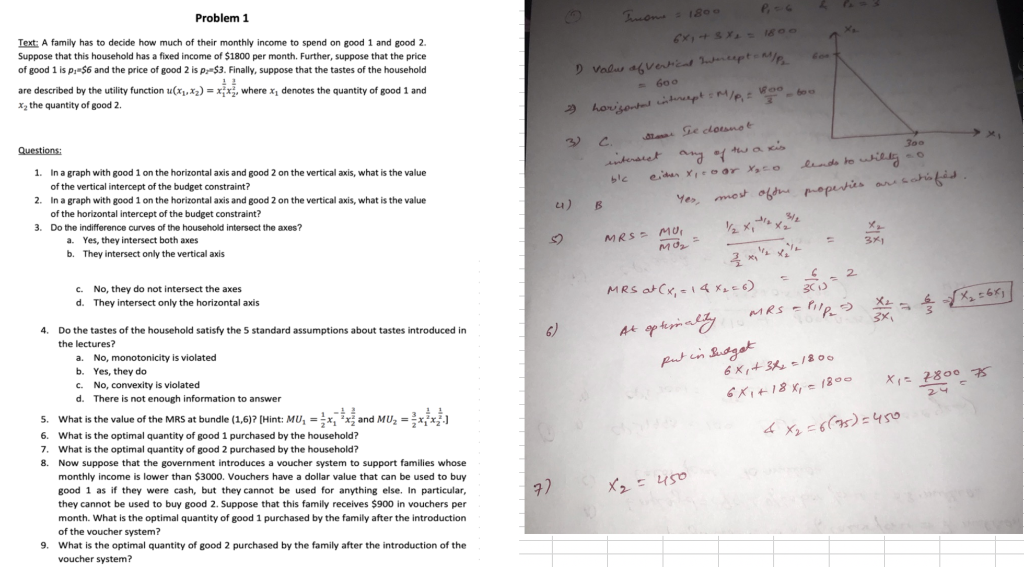 Problem 1
Text: A family has to decide how much of their monthly income to spend on good 1 and good 2.
Suppose that this household has a fixed income of $1800 per month. Further, suppose that the price
of good 1 is p₁=$6 and the price of good 2 is p₂=$3. Finally, suppose that the tastes of the household
are described by the utility function u(x₁, x₂) = x₁^(1/2) x₂^(3/2), where x₁ denotes the quantity of good 1 and
x₂ the quantity of good 2.
Questions:
1. In a graph with good 1 on the horizontal axis and good 2 on the vertical axis, what is the value
of the vertical intercept of the budget constraint?
2. In a graph with good 1 on the horizontal axis and good 2 on the vertical axis, what is the value
of the horizontal intercept of the budget constraint?
3. Do the indifference curves of the household intersect the axes?
a. Yes, they intersect both axes
b. They intersect only the vertical axis
c. No, they do not intersect the axes
d. They intersect only the horizontal axis
4. Do the tastes of the household satisfy the 5 standard assumptions about tastes introduced in
the lectures?
a. No, monotonicity is violated
b. Yes, they do
c. No, convexity is violated
d. There is not enough information to answer
5. What is the value of the MRS at bundle (1,6)? [Hint: MU₁ = 1/2 x₁^(-1/2) x₂^(3/2) and MU₂ = 3/2 x₁^(1/2) x₂^(1/2).]
6. What is the optimal quantity of good 1 purchased by the household?
7. What is the optimal quantity of good 2 purchased by the household?
8. Now suppose that the government introduces a voucher system to support families whose
monthly income is lower than $3000. Vouchers have a dollar value that can be used to buy
good 1 as if they were cash, but they cannot be used for anything else. In particular,
they cannot be used to buy good 2. Suppose that this family receives $900 in vouchers per
month. What is the optimal quantity of good 1 purchased by the family after the introduction
of the voucher system?
9. What is the optimal quantity of good 2 purchased by the family after the introduction of the
voucher system?
= 1800 P₁ = 6 &
6X₁ + 3X₂ = 1800
1) Value of Vertical Intercept = M/P₂
= 600
2) horizontal intercept = M/P₁ =
X₂
600
300
X₁
3) C. ICC doesnot
intersect any of the axis
b/c either X₁=0 or X₂=0 leads to utility = 0
4) B Yes, most of the properties are satisfied.
5) MRS = MU₁/MU₂ = (1/2 X₁^(-1/2) X₂^(3/2))/(3/2 X₁^(1/2) X₂^(1/2)) = X₂/3X₁
MRS at (X₁ = 1 & X₂ = 6) = 6/3(1) = 2
6) At optimality MRS = P₁/P₂ ⇒ X₂/3X₁ = 6/3 ⇒ X₂ = 6X₁
put in Budget
6X₁ + 3X₂ = 1800
6X₁ + 18X₁ = 1800 X₁ = 1800/24 = 75
& X₂ = 6(75) = 450
7) X₂ = 450